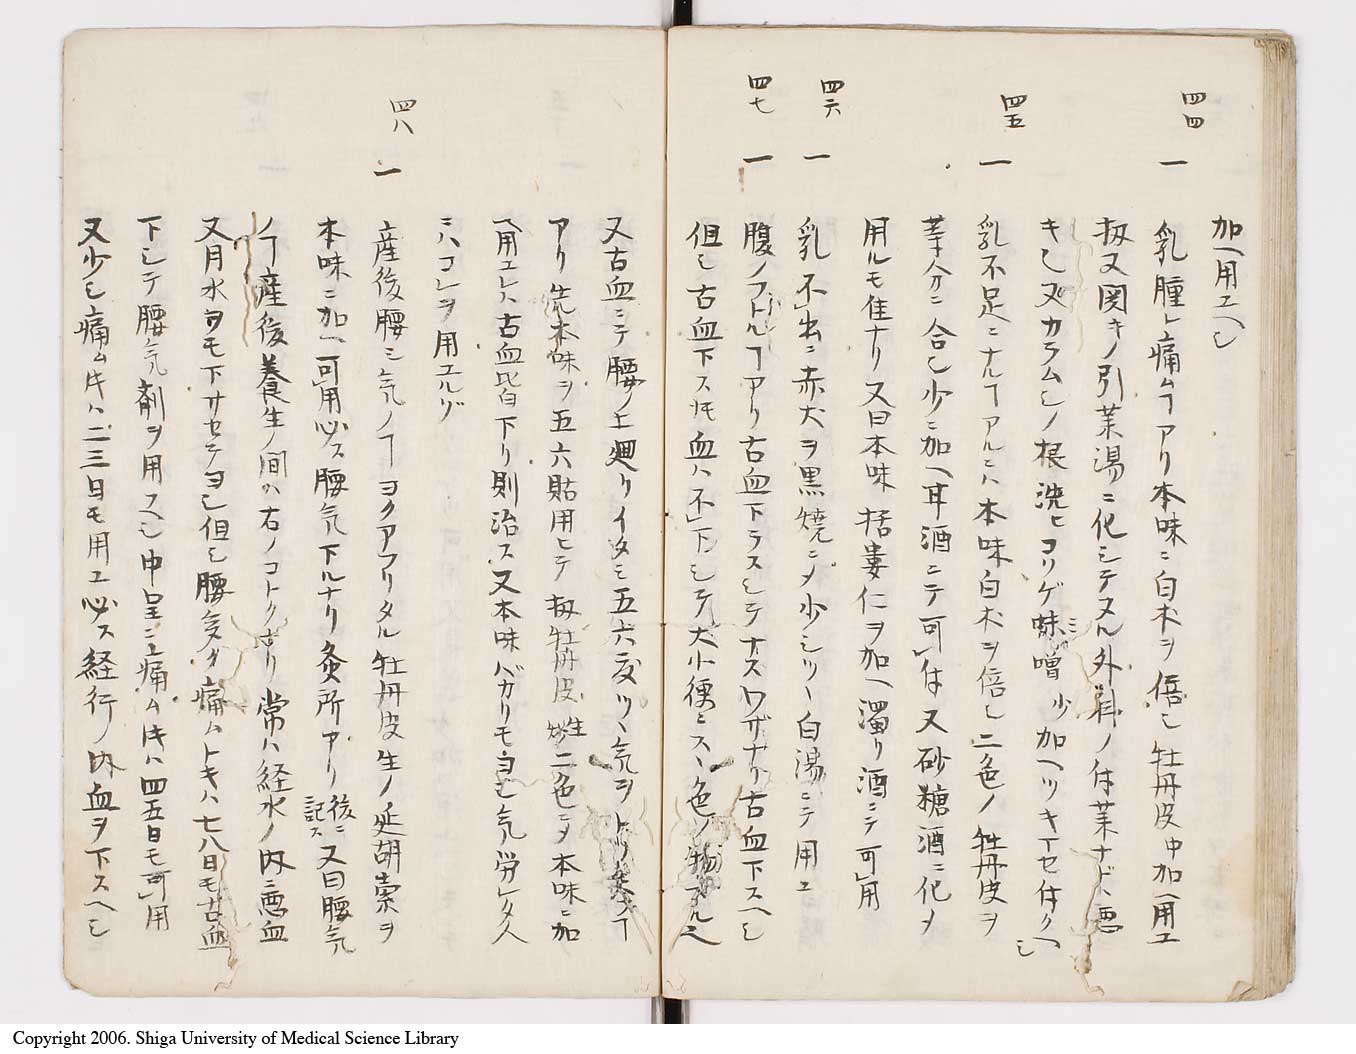 加ヘ用ユヘシ
四四
一 乳腫レ痛ムヿアリ本味ニ白朮ヲ倍シ牡丹皮中加ヘ用ユ
扨又関キノ引薬湯ニ化シテヌル外料ノ付薬ナド悪
キシ又カラムシノ根洗ヒコソゲ味噌少加ヘツキマセ付クヘシ
四五
一 乳不足ニナルヿアルニハ本味白朮ヲ倍シ二色ノ牡丹皮ヲ
等分ニ合シ少ニ加ヘ甘酒ニテ可付又砂糖酒ニ化メ
用ルモ佳ナリ又曰本味括蔞仁ヲ加ヘ濁リ酒ニテ可用
四六
一 乳不出ニ赤犬ヲ黒焼ニメ少シツヽ白湯ニテ用ユ
四七
一 腹ノフトルヿアリ古血下ラスシテナスワザナリ古血下スヘシ
但シ古血下スㇳモ血ハ不下シテ大小便ニスヽ色ノ物下ル也
又古血ニテ腰ノ上廻リイタミ五六度ツヽ気ヲトリ
アリ先本味ヲ五六貼用ヒテ扨牡丹皮 生 二色ニメ本味ニ加
ヘ用ユレハ古血皆下リ則治ス又本味バカリモヨシ気労シタ人
ニハコレヲ用ユルゾ
四八
一 産後腰ミ気ノヿヨクアフリタル牡丹皮生ノ延胡索ヲ
本味ニ加ヘ可用必ス腰気下ルナリ灸所アリ 後ニ記ス 又曰腰気
ノヿ産後養生ノ間ハ右ノコトクナリ常ハ経水ノ内ニ悪血
又月水ヲモ下サセテヨシ但シ腰多ク痛ムトキハ七八日モ古血
下シテ腰気剤ヲ用スヘシ中呈ニ痛ム片ハ四五日モ可用
又少シ痛ム片ハ二三日モ用ユ必ス経行ノ内血ヲ下スヘシ
Copyright 2006. Shiga University of Medical Science Library